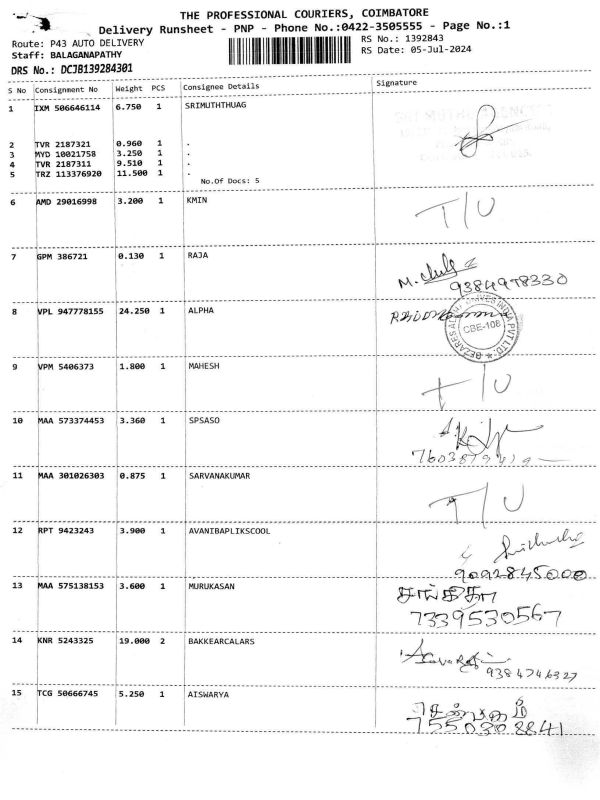 THE PROFESSIONAL COURIERS, COIMBATORE
Delivery Runsheet - PNP - Phone No.:0422-3505555 - Page No.:1
Route: P43 AUTO DELIVERY
RS No.: 1392843
Staff: BALAGANAPATHY
RS Date: 05-Jul-2024
DRS No.: DCJB139284301
S No Consignment No Weight PCS Consignee Details Signature
1 IXM 506646114 6.750 1 SRIMUTHTHUAG
2 TVR 2187321 0.960 1 .
3 MYD 10021758 3.250 1 .
4 TVR 2187311 9.510 1 .
5 TRZ 113376920 11.500 1 .
No.Of Docs: 5
6 AMD 29016998 3.200 1 KMIN T/U
7 GPM 386721 0.130 1 RAJA
9384978330
8 VPL 947778155 24.250 1 ALPHA
CBE-108
9 VPM 5406373 1.800 1 MAHESH T/U
10 MAA 573374453 3.360 1 SPSASO
11 MAA 301026303 0.875 1 SARVANAKUMAR T/U
12 RPT 9423243 3.900 1 AVANIBAPLIKSCOOL
9092845000
13 MAA 575138153 3.600 1 MURUKASAN சங்கீதா
7339530567
14 KNR 5243325 19.000 2 BAKKEARCALARS
9384746327
15 TCG 50666745 5.250 1 AISWARYA
7550308841